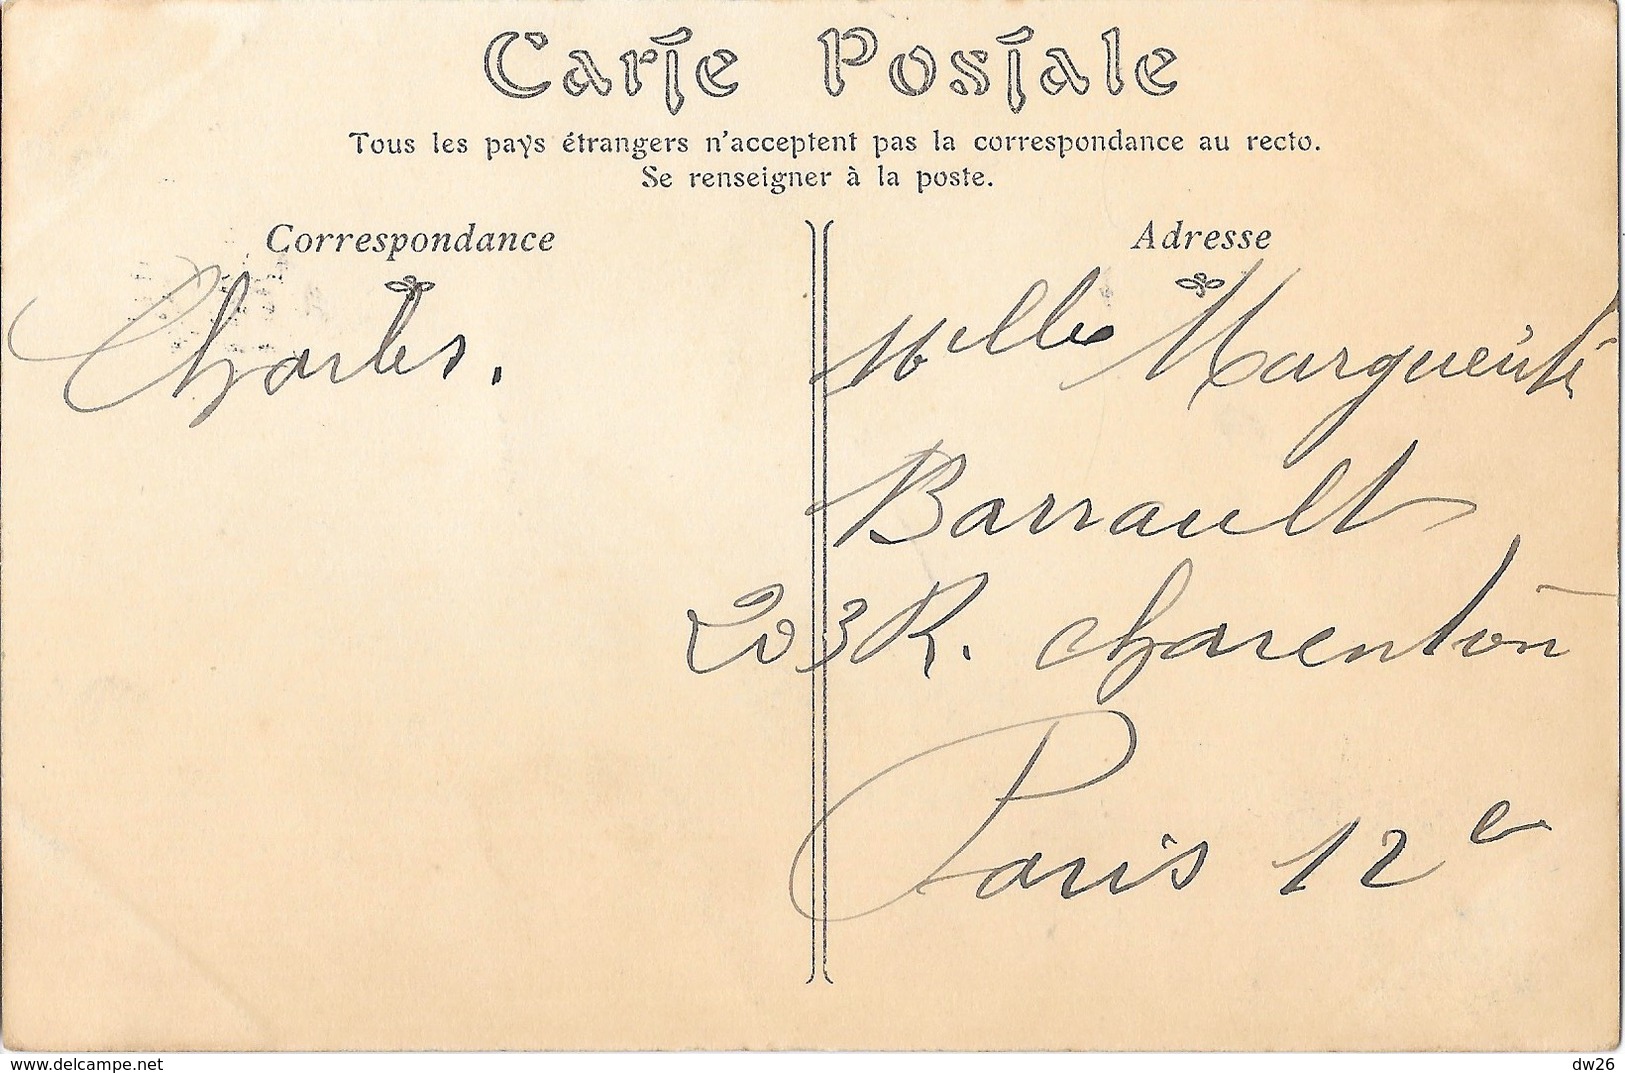 Carte Postale
Tous les pays étrangers n'acceptent pas la correspondance au recto.
Se renseigner à la poste.
Correspondance
Charles.
Adresse
Melle Marguerite
Barrault
203 R. Charenton
Paris 12e
delcampe.net
dw26